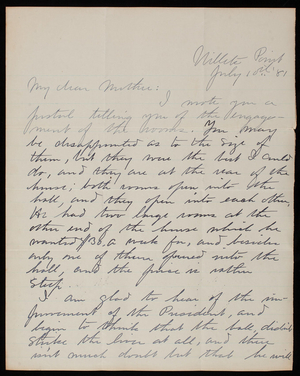 Willets Point
July 10th '81
My dear Mother:
I wrote you a
postal telling you of the engage-
ment of the rooms. You may
be disappointed as to the size of
them, but they were the best I could
do, and they are at the rear of the
house; both rooms open into the
hall, and they open into each other.
He had two large rooms at the
other end of the house which he
wanted $30 a week for, and besides
only one of them opened into the
hall, and the price is rather
steep.
I am glad to hear of the im-
provement of the President, and
begin to think that the ball didn't
strike the liver at all, and there
isn't much doubt but that he will